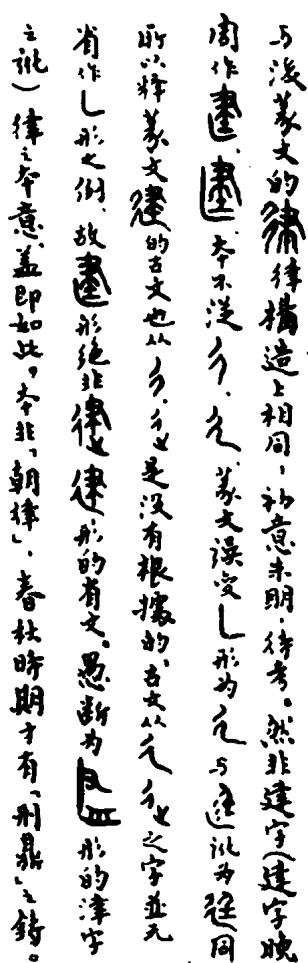 与後篆文的律構造上相同，初意未明，待考。然非建字（建字晚
周作、，本不從彳、廴，篆文誤变乚形为廴，与訛为同
所以釋篆文的古文也从彳，彳也是没有根據的，古文从廴彳之字並无
省作乚形之例，故形绝非律、形的省文。愚断为形的津字
之訛）律之本意，盖即如此。本非「朝律」，春秋時期才有「刑鼎」之鋳。